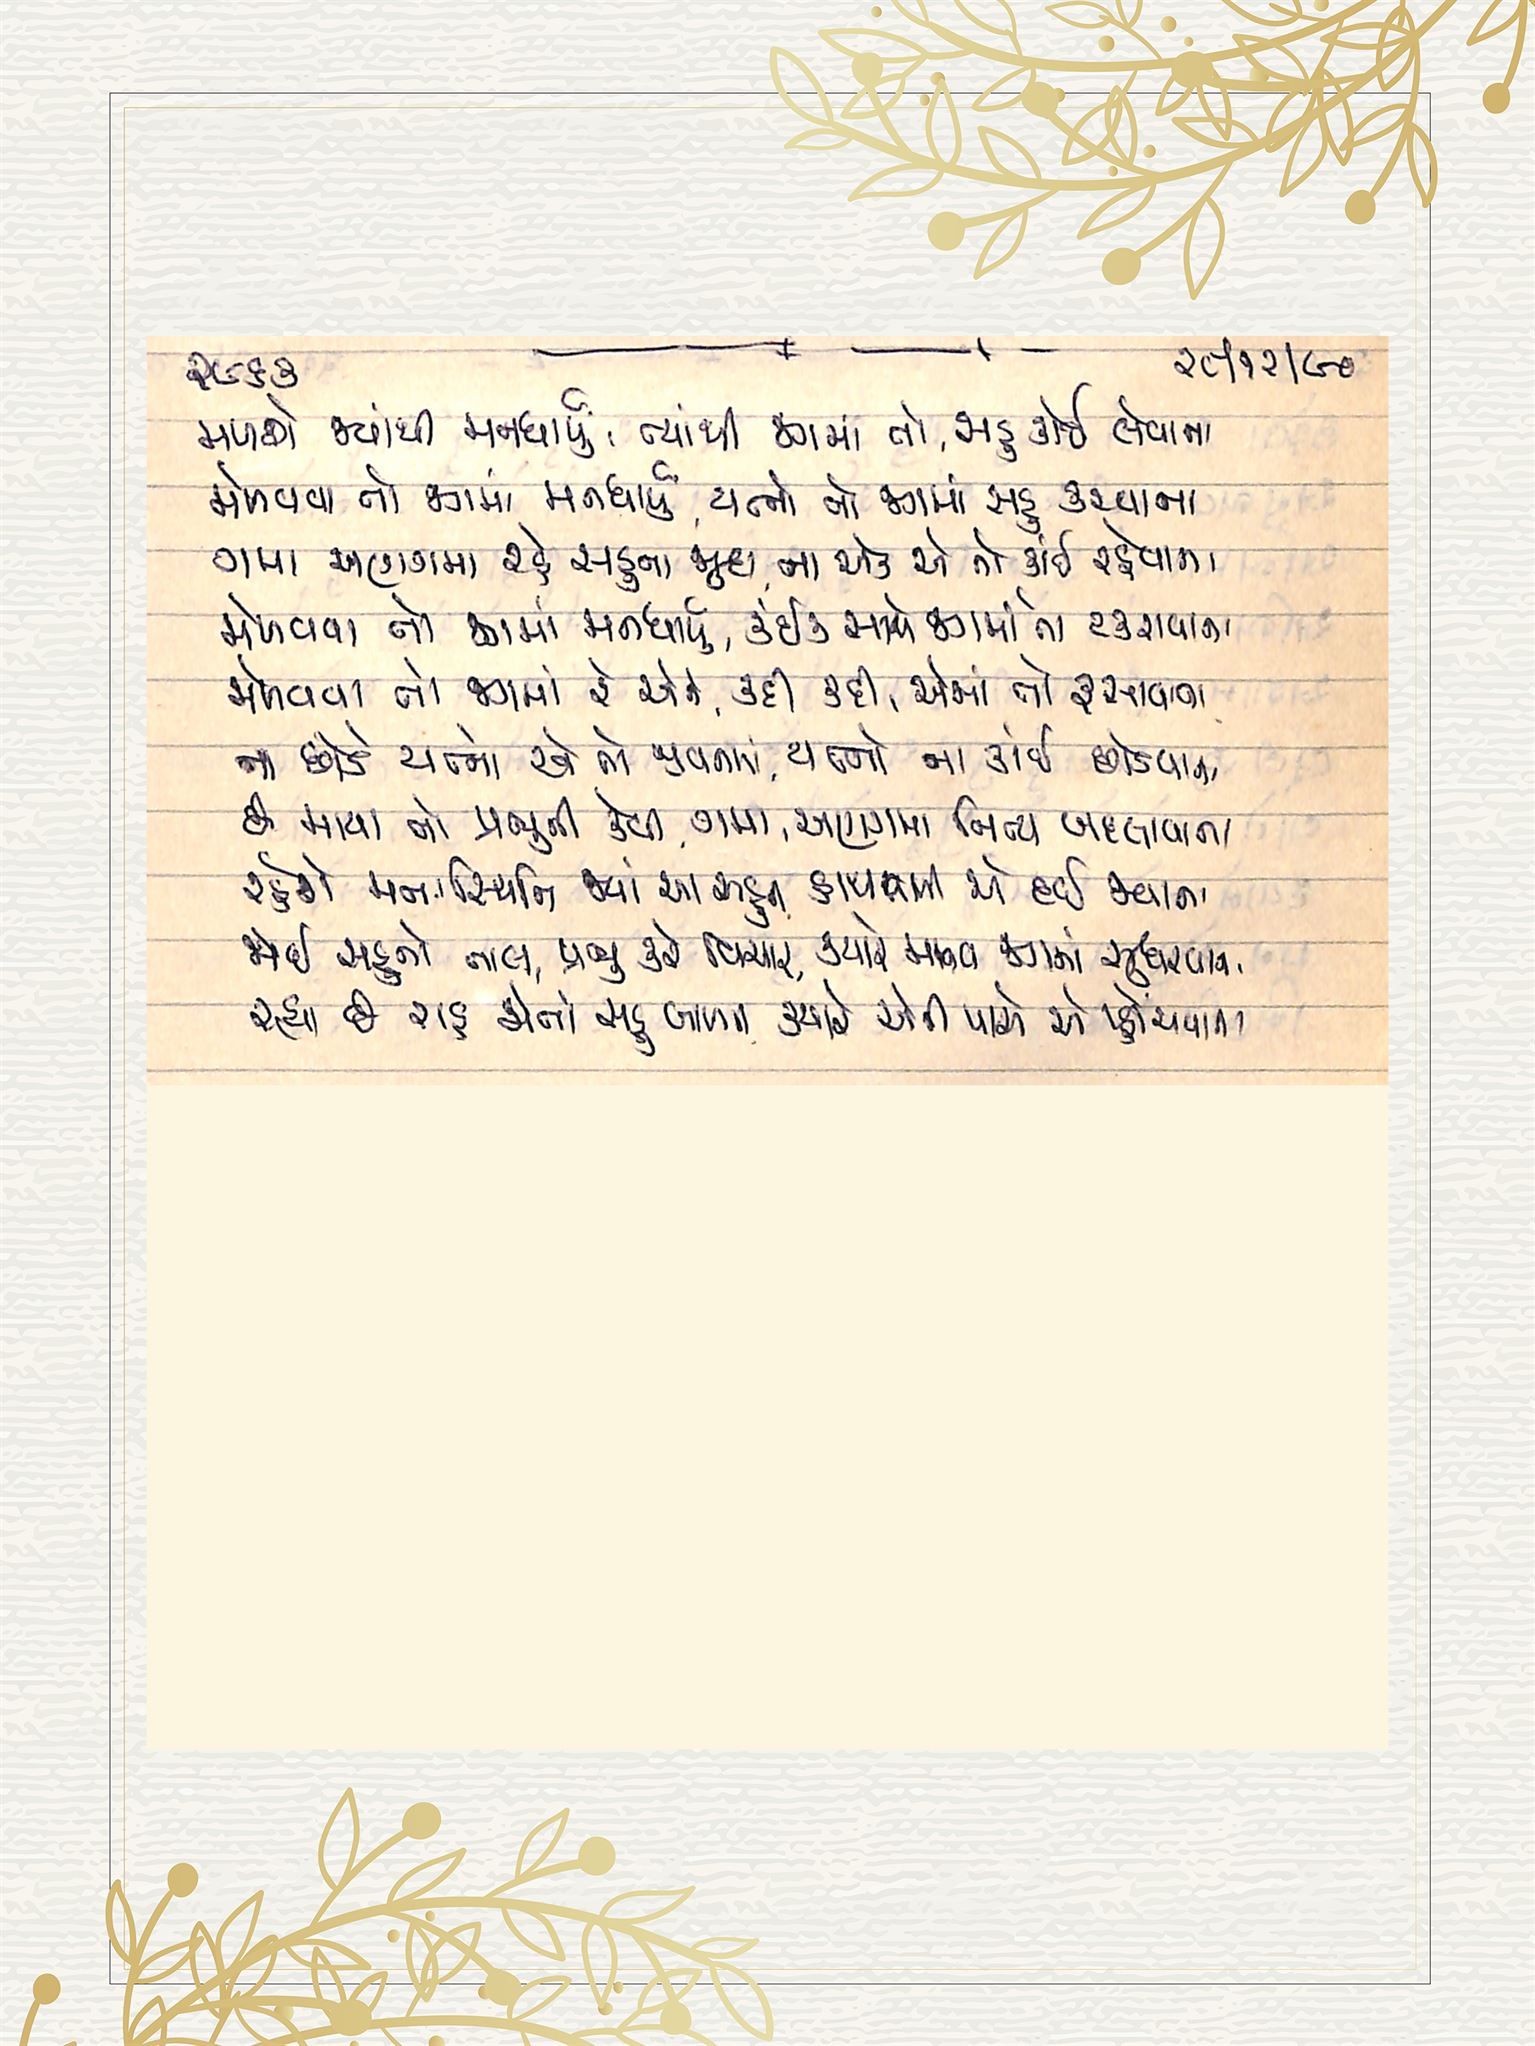 ૨૯૬૩ ૨૯/૧૨/૯૦
મળશે જ્યાંથી મનધાર્યું, ત્યાંથી જગમાં તો, સહુ કોઈ લેવાના
મેળવવા તો જગમાં મનધાર્યું, યત્નો તો જગમાં સહુ કરવાના
ગમા અણગમા રહે સહુના જુદા, ના એક એ તો કાંઈ રહેવાના
મેળવવા તો જગમાં મનધાર્યું, કંઈક સાથે જગમાં તો ટકરાવાના
મેળવવા તો જગમાં રે એને, કદી કદી, એમાં તો ફસાવાના
ના છોડે યત્નો એ તો જીવનમાં, યત્નો ના કાંઈ છોડવાના
છે માયા તો પ્રભુની કેવી, ગમા, અણગમા નિત્ય બદલાવાના
રહેશે મનઃસ્થિતિ જ્યાં આ સહુની, કાયમની એ દઈ જવાના
જોઈ સહુનો તાલ, પ્રભુ કરે વિચાર, ક્યારે માનવ જગમાં સુધરવાના
રહ્યા છે રાહ જોતો સહુ બાળની ક્યારે એની પાસે એ પ્હોંચવાના